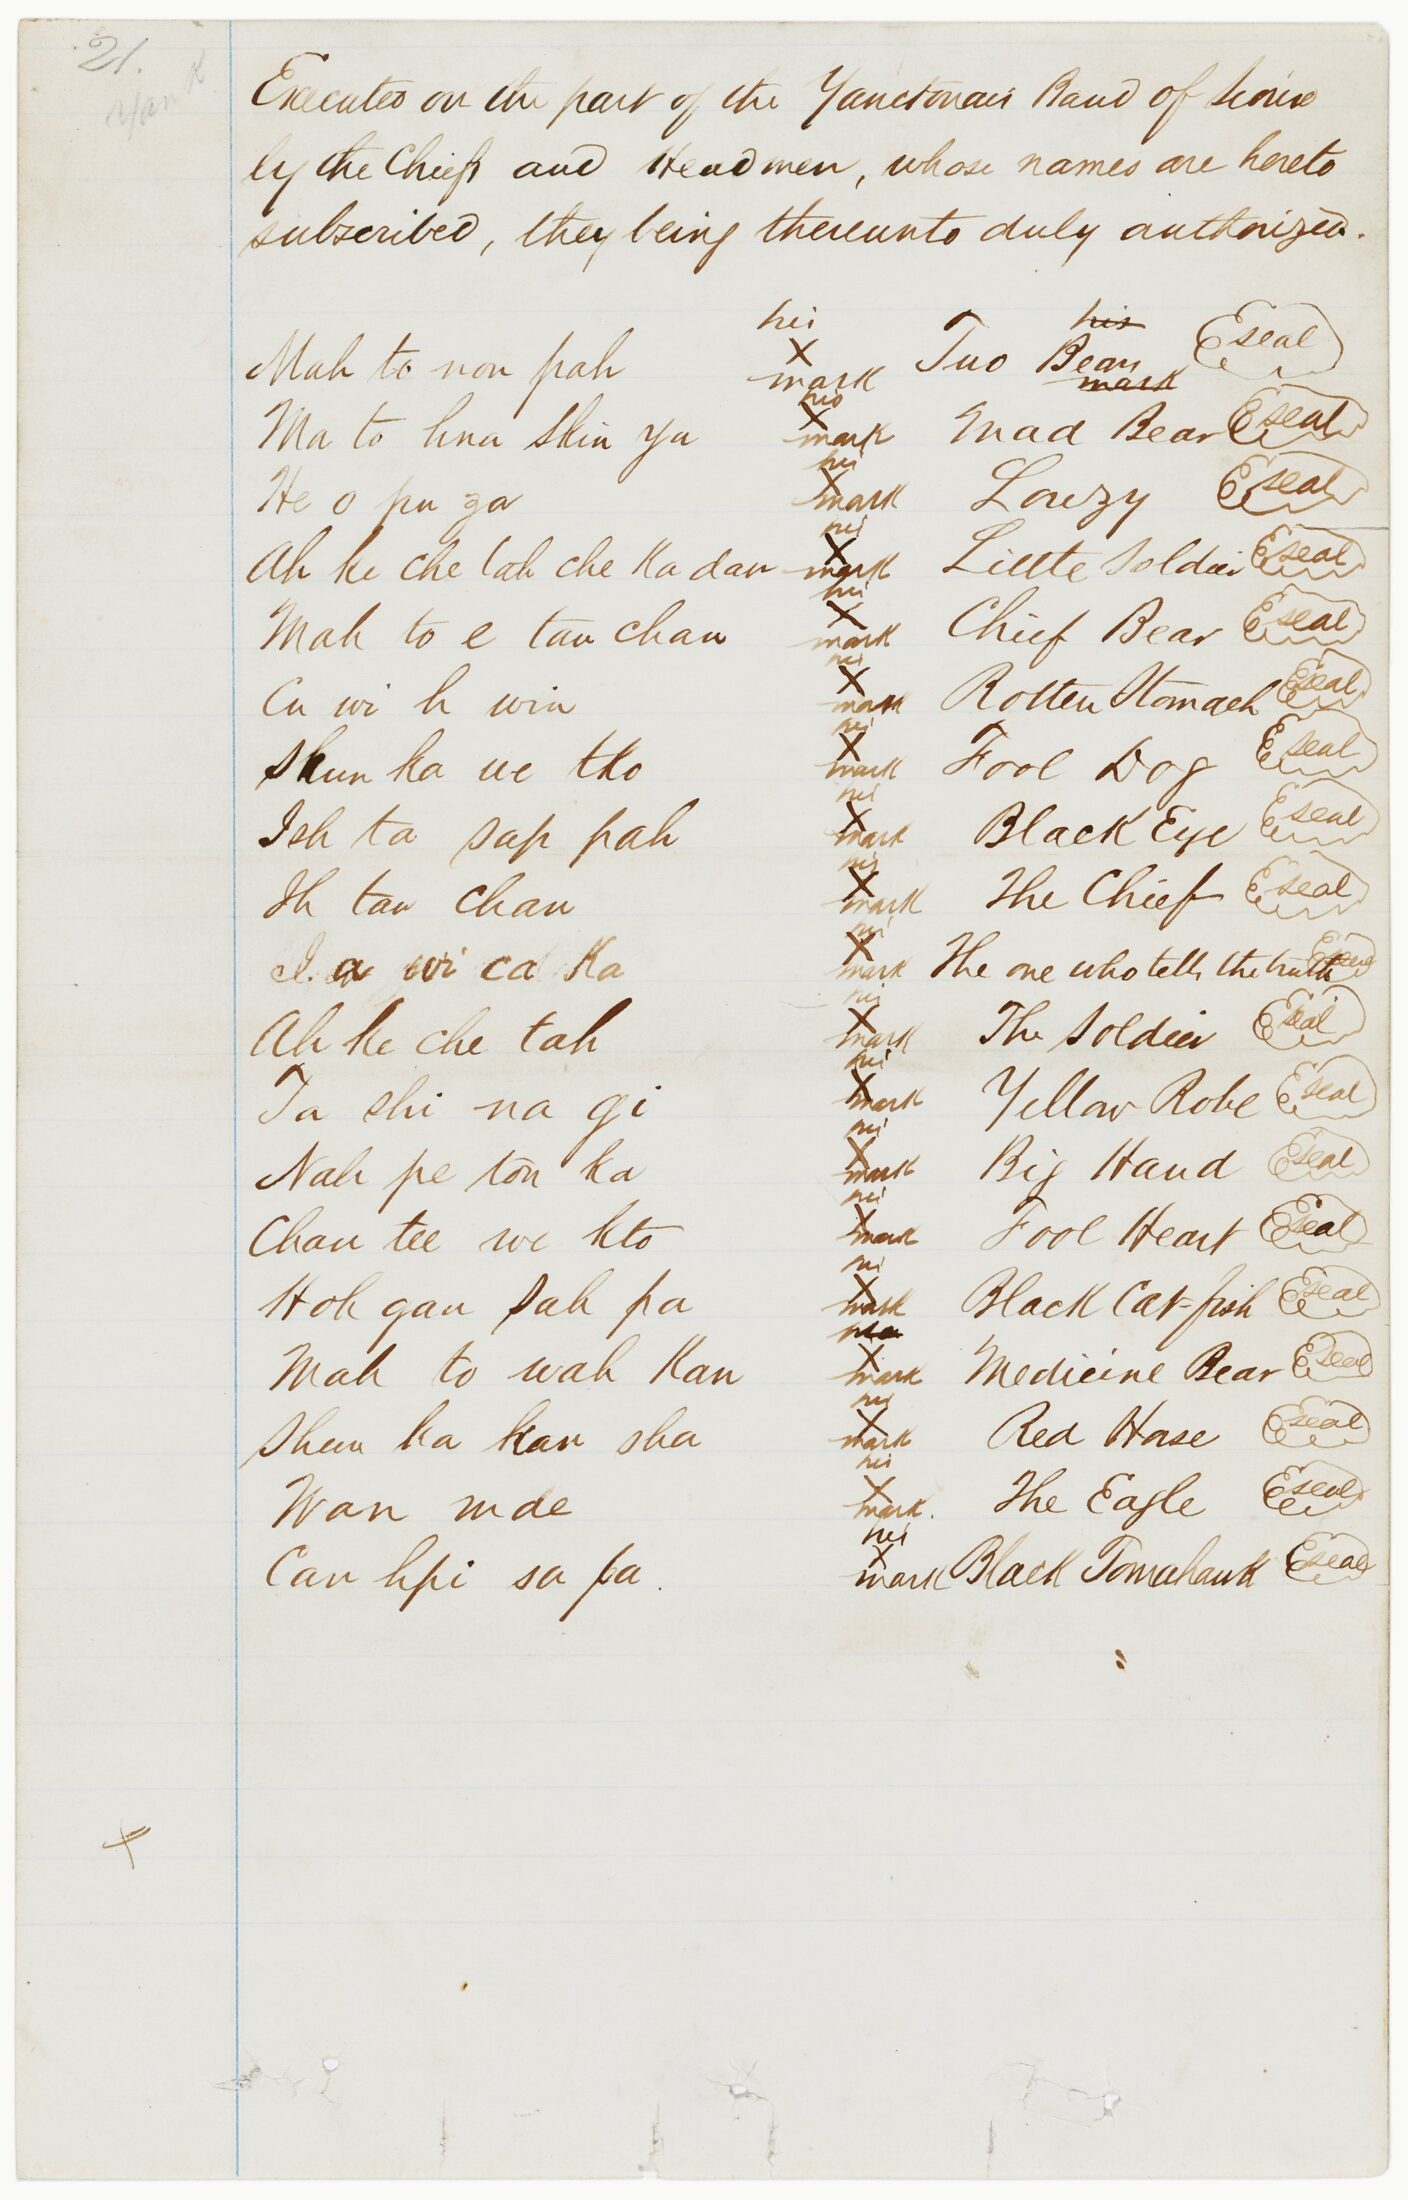 21.
Yank
Executed on the part of the Yanctonais Band of Sioux
by the Chiefs and Headmen, whose names are hereto
subscribed, they being thereunto duly authorized.
Mah to non pah his X mark Two Bears his mark seal
Ma to hna skin ya his X mark Mad Bear seal
He o pu za his X mark Louzy seal
Ah ke che tah che ka dan his X mark Little Soldier seal
Mah to e tan chan his X mark Chief Bear seal
Cu wi h win his X mark Rotten Stomach seal
Skun ka we tko his X mark Fool Dog seal
Ish ta sap pah his X mark Black Eye seal
Ih tan chan his X mark The Chief seal
I. a wi ca ka his X mark The one who tells the truth seal
Ah ke che tah his X mark The Soldier seal
Ta shi na gi his X mark Yellow Robe seal
Nah pe ton ka his X mark Big Hand seal
Chan tee we kto his X mark Fool Heart seal
Hoh gan sah pa his X mark Black Cat-fish seal
Mah to wah kan his X mark Medicine Bear seal
Shun ka kan sha his X mark Red Horse seal
Wan mde his X mark. The Eagle seal
Can hpi sa pa. his X mark Black Tomahawk seal